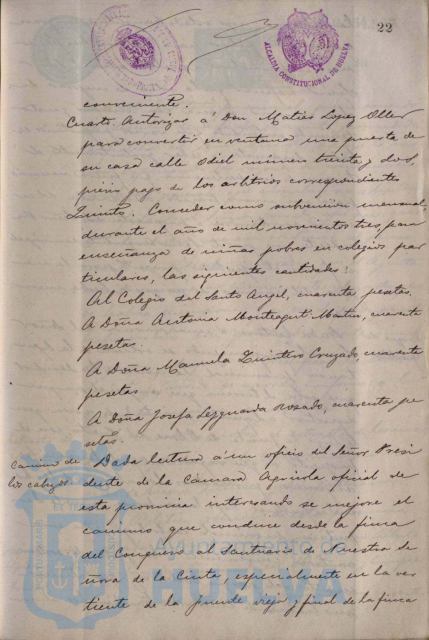 22
ALCALDIA CONSTITUCIONAL DE HUELVA
conveniente.
Cuarto. Autorizar á Don Matias Lopez Oller
para convertir en ventana una puerta de
su casa calle Odiel número treinta y dos,
prévio pago de los arbitrios correspondientes
Quinto. Conceder como subvencion mensual,
durante el año de mil novecientos tres para
enseñanza de niñas pobres en colegios par
ticulares, las siguientes cantidades:
Al Colegio del Santo Angel, cuarenta pesetas.
A Doña Antonia Montagut Martin, cuarenta
pesetas.
A Doña Manuela Quintero Cruzado, cuarenta
pesetas
A Doña Josefa Rosado, cuarenta pe
setas.
Camino de
los cabezos
Dada lectura á un oficio del Señor Presi
dente de la Cámara Agricola oficial de
esta provincia interesando se mejore el
camino que conduce desde la finca
del Conquero al Santuario de Nuestra Se
ñora de la Cinta, especialmente en la ver
tiente de la fuente vieja y final de la finca
HUELVA